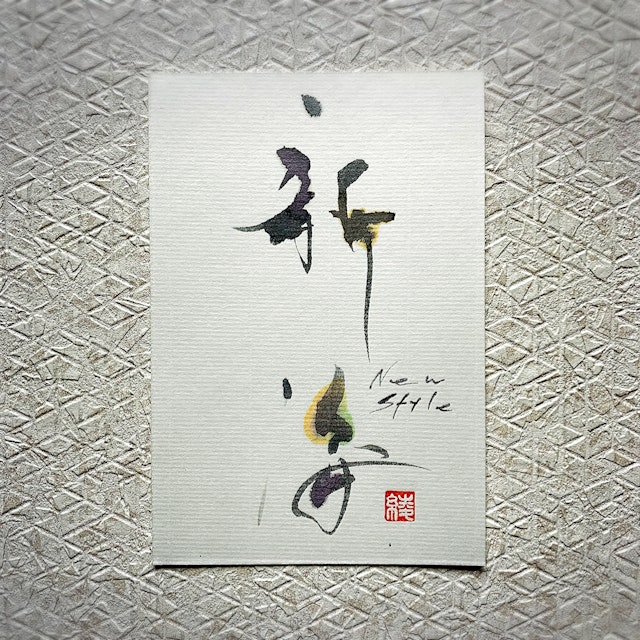 新
New
Style
綾